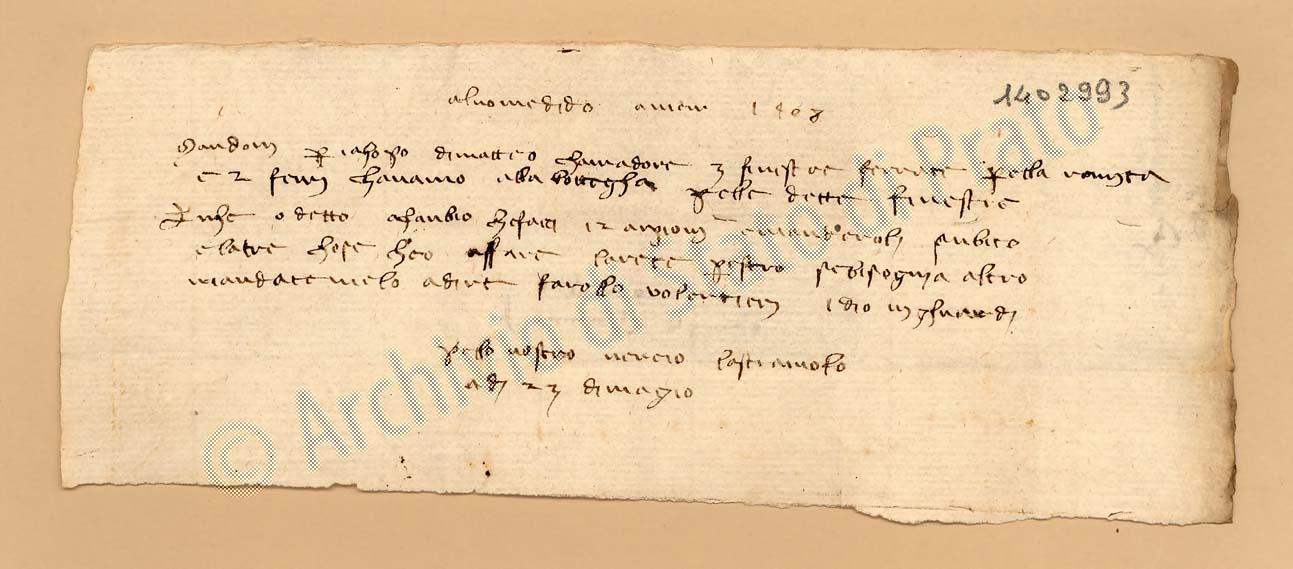 al nome di dio amen 1408
1402993
Mandovi p iachopo di matteo charadore 3 finestre ferrate p ella
e 2 ferri chavamo alla bottegha p elle dette finestre
o detto a che facci 12 subito
e latre chose cheo affare larete presto se bisognia altro
mandatemelo a dire farollo volentieri idio vi ghuardi
p ello vostro nencio lastraiuolo
a di 23 di magio
© Archivio di Stato di Prato